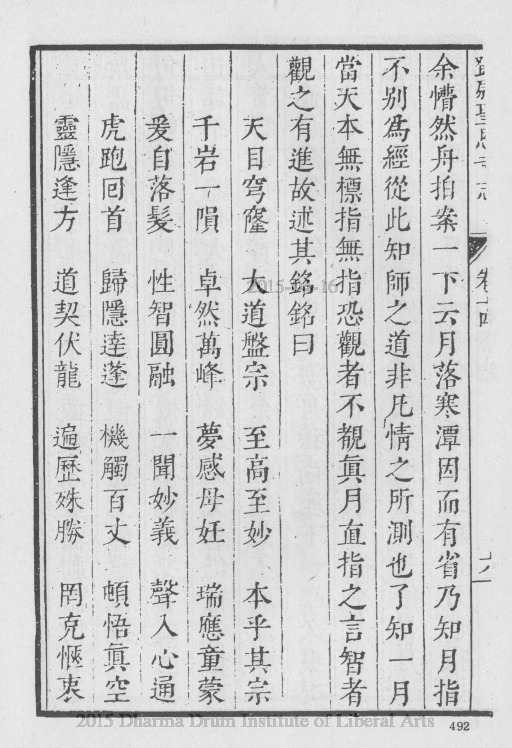 聖恩寺志
卷十四
余懵然舟拍案一下云月落寒潭因而有省乃知月指
不別爲經從此知師之道非凡情之所測也了知一月
當天本無標指無指恐觀者不覩眞月直指之言智者
觀之有進故述其銘銘曰
天目穹窿 大道盤宗 至高至妙 本乎其宗
千岩一隕 卓然萬峰 夢感母妊 瑞應童蒙
爰自落髮 性智圓融 一聞妙義 聲入心通
虎跑回首 歸隱逹蓬 機觸百丈 頓悟眞空
靈隱逢方 道契伏龍 遍歷殊勝 罔克愜衷
2015 Dharma Drum Institute of Liberal Arts
492